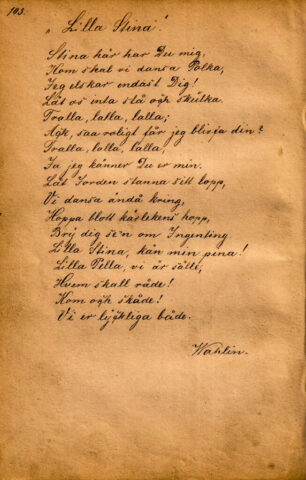 103.
„Lilla Stina".
Stina här har Du mig,
Kom skal vi dansa Polka,
Jeg elskar endast Dig!
Låt os enta stå och skülka.
Tralla, lalla, lalla;
Agk, saa roligt får jeg blifva din?
Tralla, lalla, lalla!
Ja jeg känner Du er min.
Låt Jorden stanna sitt lopp,
Vi dansa ändå kring,
Hoppa blott kärlekens hopp,
Brÿ dig se'n om Ingenting
Lille Stina, kän min pena!
Lilla Pilla, vi är sälle,
Hvem skall råde!
Kom ogh skåde!
Vi er lyckliga både.
Wahlin.